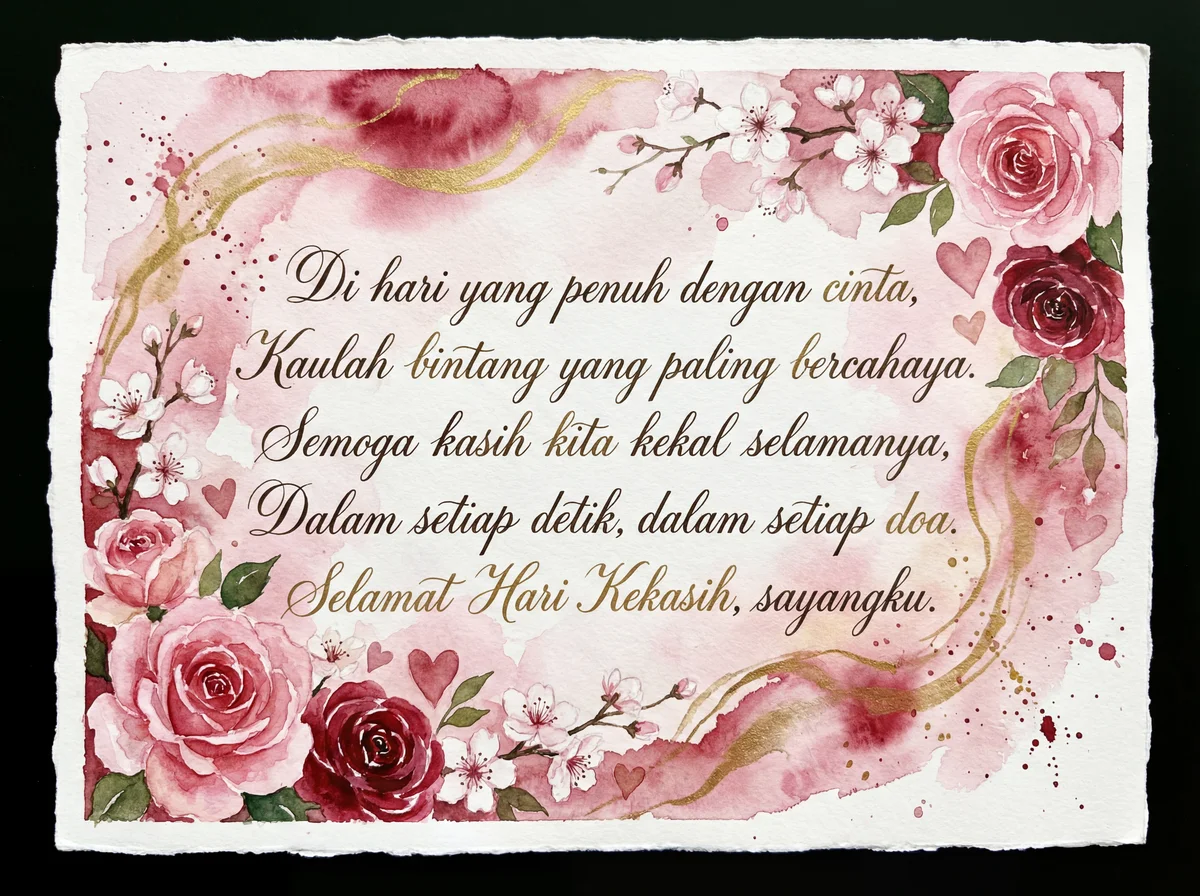 Di hari yang penuh dengan cinta,
Kaulah bintang yang paling bercahaya.
Semoga kasih kita kekal selamanya,
Dalam setiap detik, dalam setiap doa.
Selamat Hari Kekasih, sayangku.